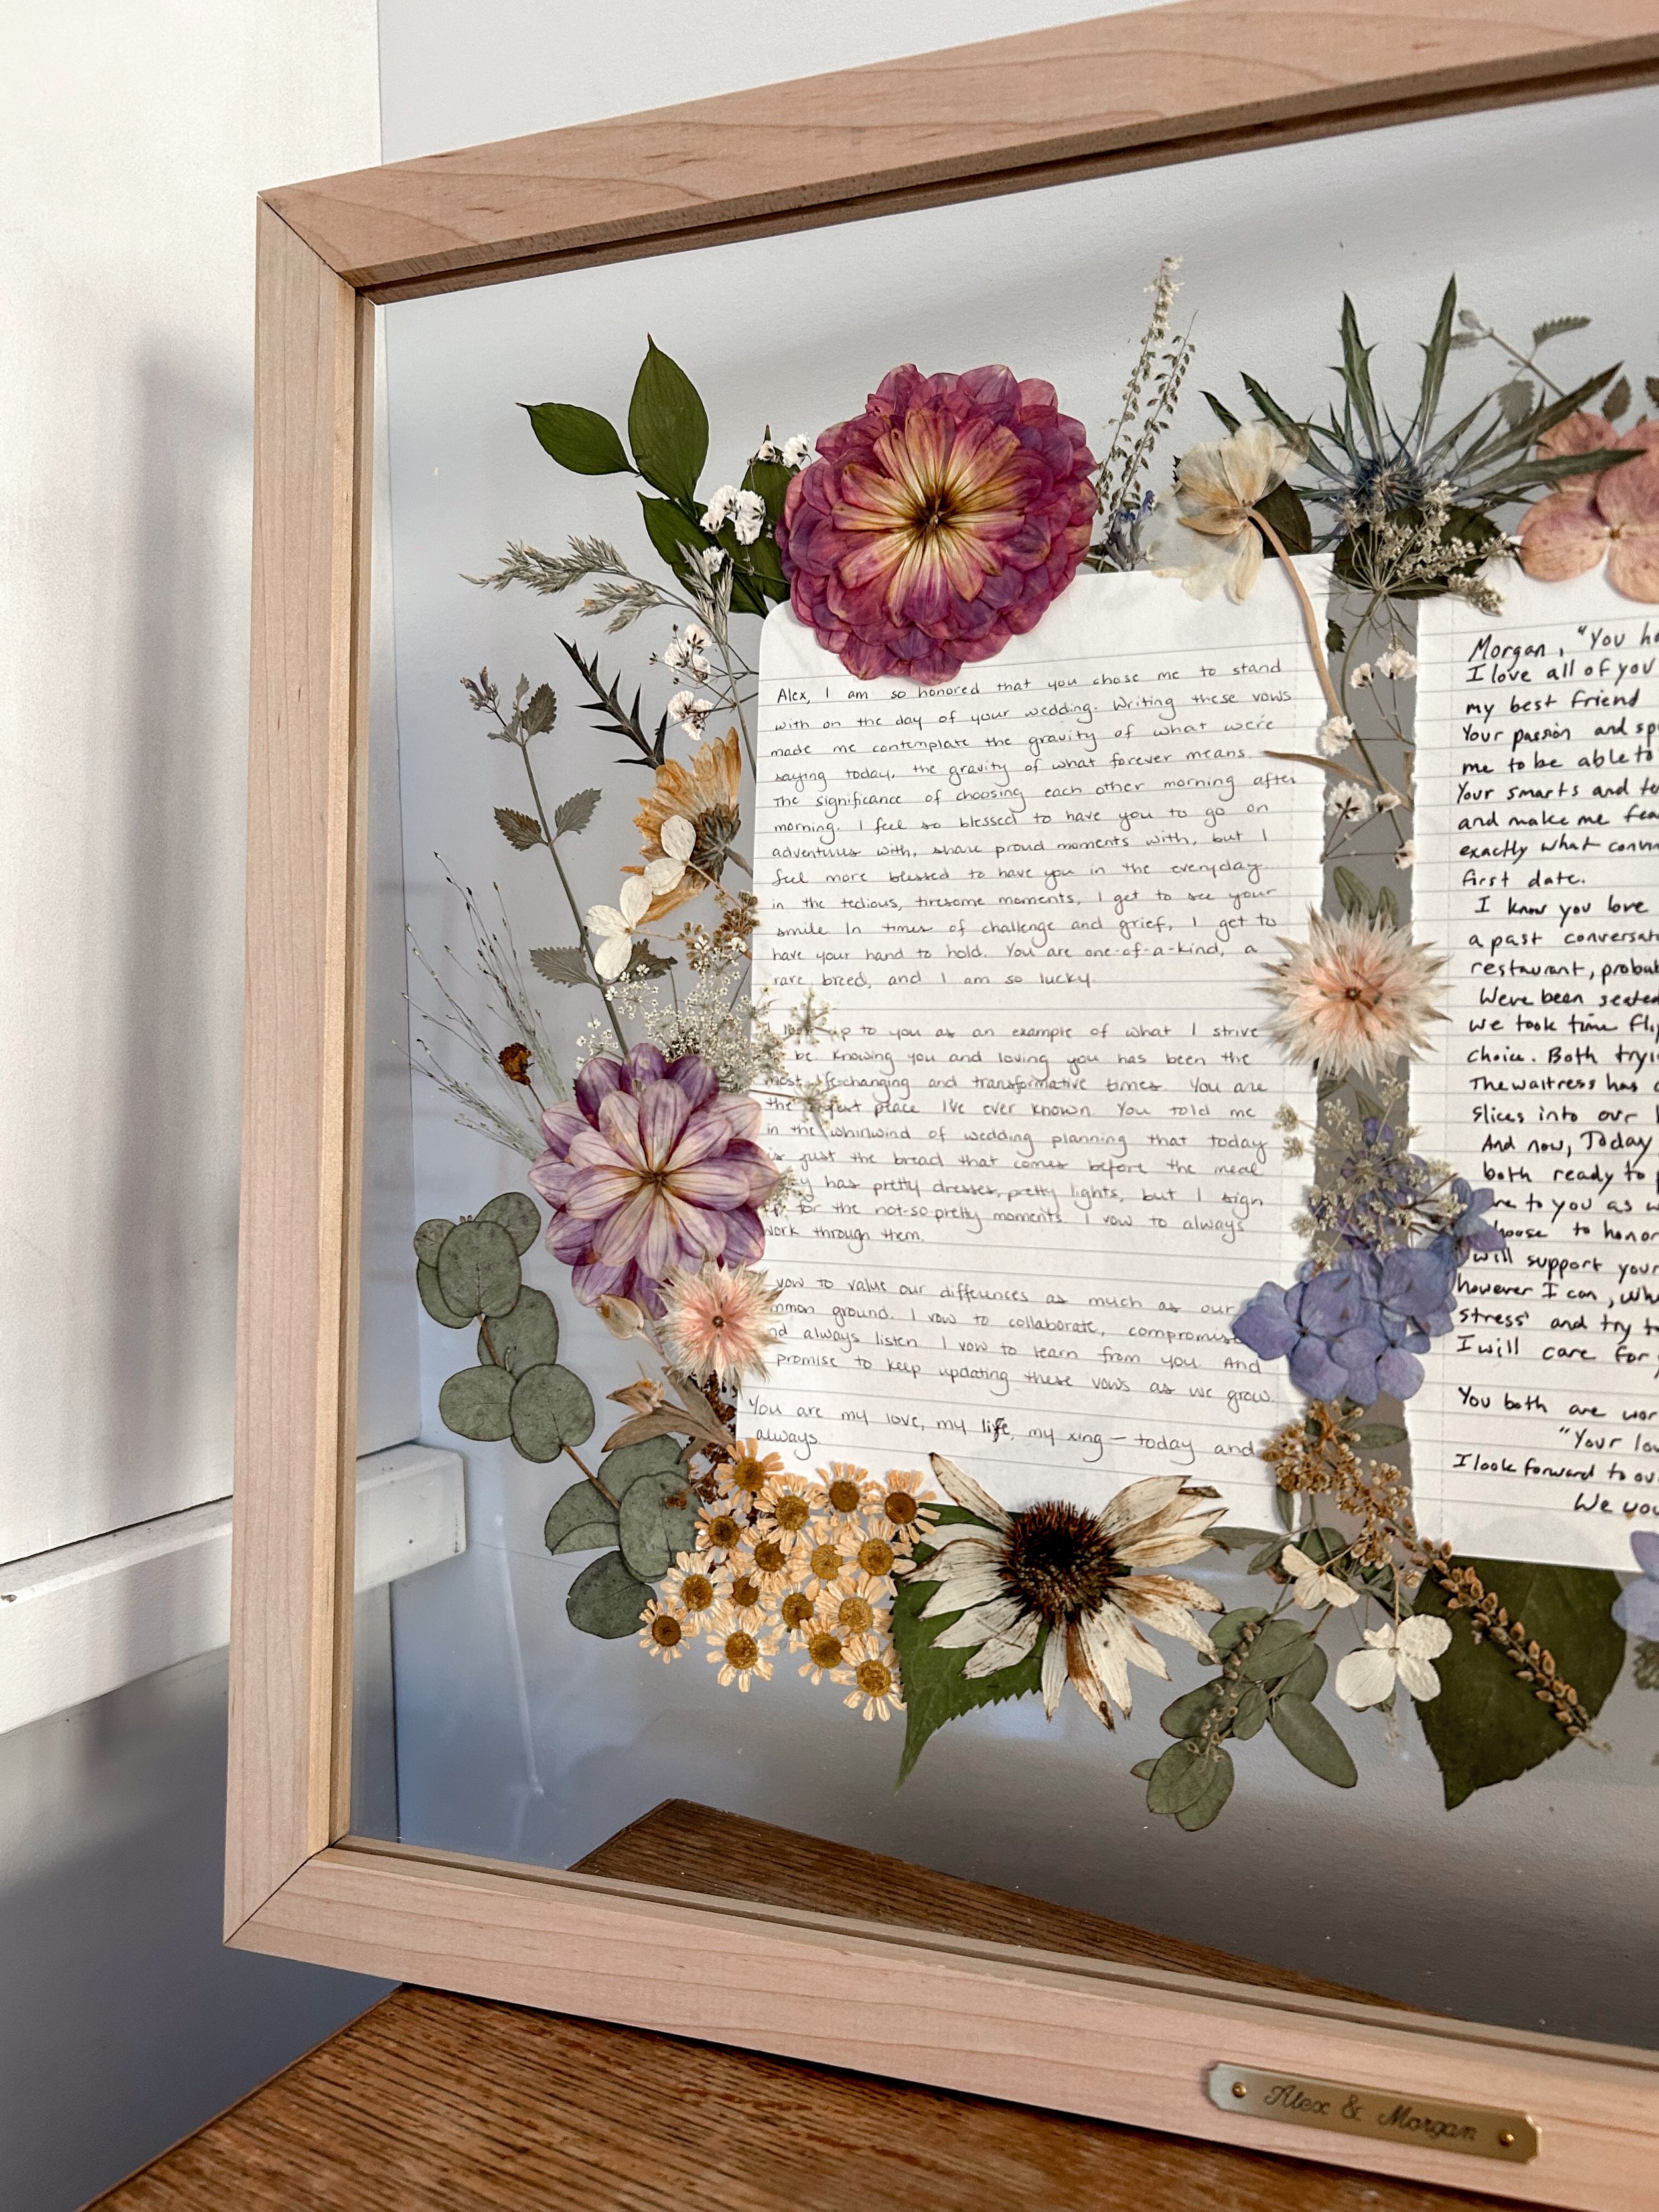 Alex, I am so honored that you chose me to stand
with on the day of your wedding. Writing these vows
made me contemplate the gravity of what we're
saying today, the gravity of what forever means.
The significance of choosing each other morning after
morning. I feel so blessed to have you to go on
adventures with, share proud moments with, but I
feel more blessed to have you in the everyday.
in the tedious, tiresome moments, I get to see your
smile In times of challenge and grief, I get to
have your hand to hold. You are one-of-a-kind, a
rare breed, and I am so lucky.
to you as an example of what I strive
be. Knowing you and loving you has been the
most life-changing and transformative times. You are
the place I've ever known. You told me
in the whirlwind of wedding planning that today
is just the bread that comes before the meal
has pretty dresses, pretty lights, but I sign
for the not-so-pretty moments. I vow to always
work through them.
vow to value our differences as much as our
ground. I vow to collaborate, compromise
always listen. I vow to learn from you. And
promise to keep updating these vows as we grow.
You are my love, my life, my xing - today and
always.
Morgan, "You
I love all of you
my best friend
Your passion and
me to be able to
Your smarts and
and make me
exactly what
first date.
I know you love
a past
restaurant,
We've been seated
we took time
choice. Both
The waitress has
slices into our
And now, Today
both ready to
to you as
to honor
will support your
however I can,
stress' and try
I will care for
You both are
"Your
I look forward to
We
Alex & Morgan